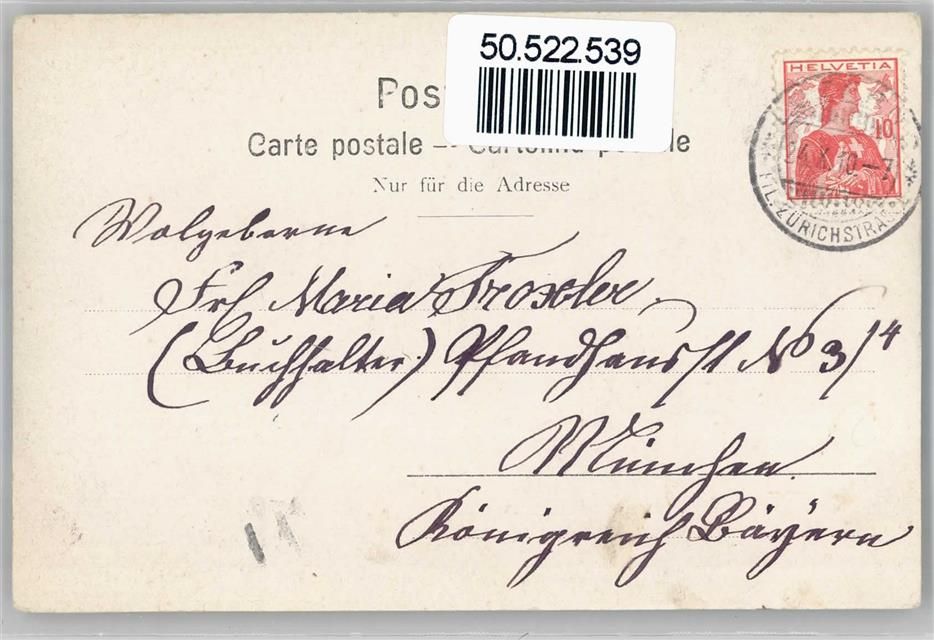 50.522.539
HELVETIA
10
Pos
Carte postale – Cartolina postale
Nur für die Adresse
24.X.10.–7
FIL. ZÜRICHSTRASSE
Wolgeborne
Frl Maria Troxler
(Buchhalter) Pfandhausst No 3/4
München
Königreich Bäÿern